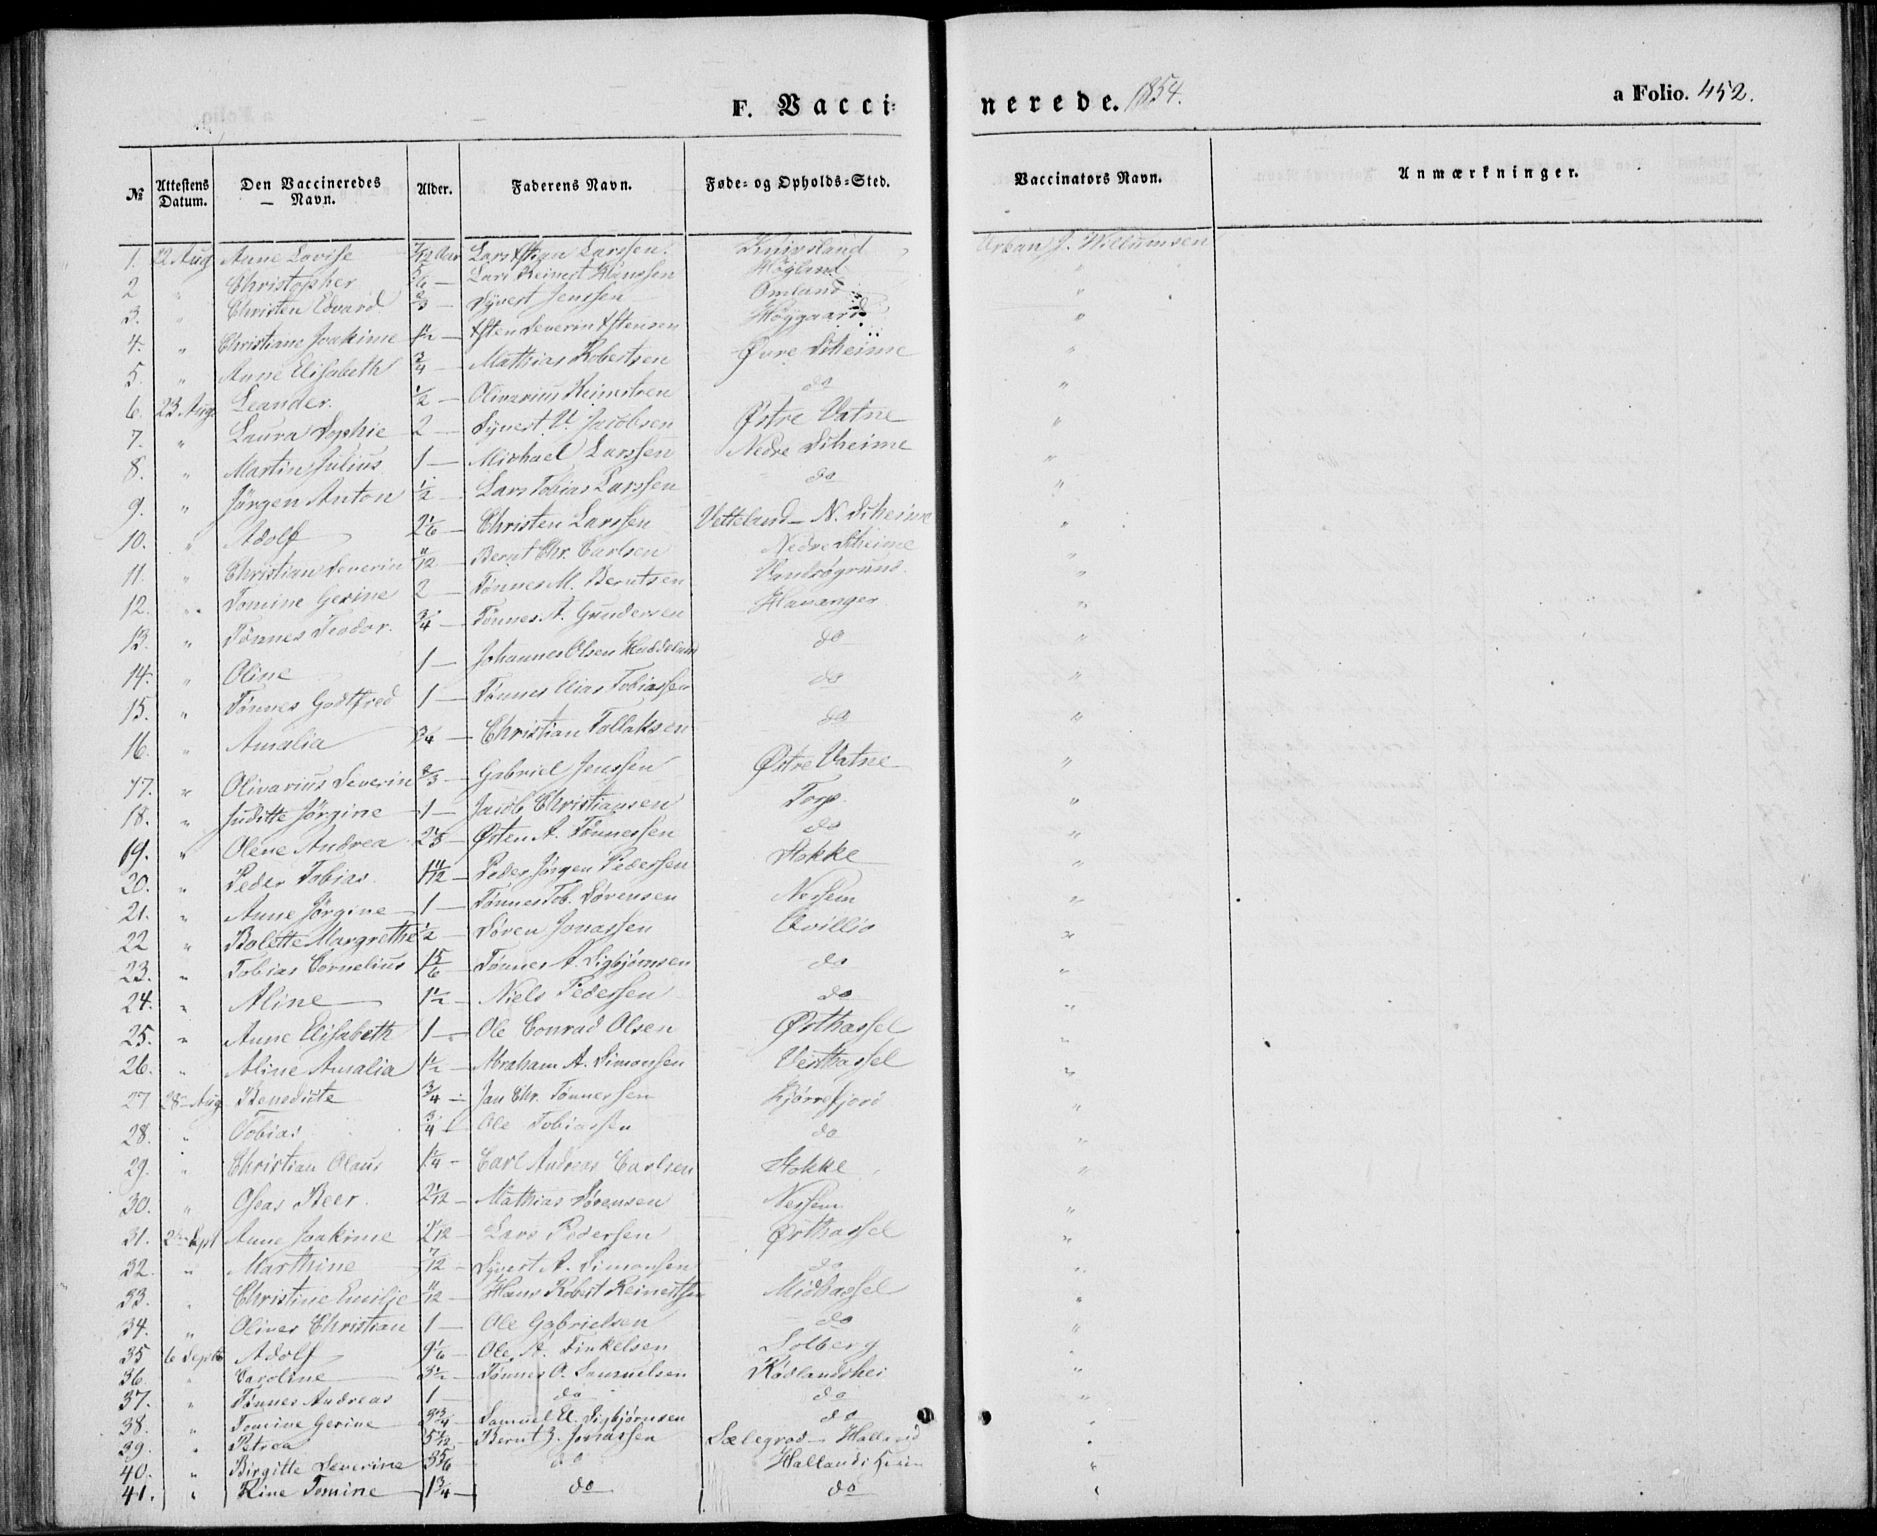 F. Vacci=nerede. 1854. a Folio. 452.
№ Attestens Datum. Den Vaccineredes Navn. Alder. Faderens Navn. Føde- og Opholds-Sted. Vaccinators Navn. Anmærkninger.
1. 22 Aug Anne Lovise 7/12 Aar Lars Larssen Knivsland Urban J. Willumsen
2 " Christopher 5/6 — Lars Reinert Hanssen Høgland "
3. " Christen Edvard 2/3 — Syvert Jenssen Omland "
4. " Christiane Joakime 1½ — Østen Severin Østensen Høygaard "
5. " Anne Elisabeth ¾ — Mathias Robertsen Øvre Skeime "
6. 23 Aug Leander. ½ — Olivarius Reinertsen do "
7. " Laura Sophie 2 — Syvert Jacobsen Østre Vatne "
8. " Martin Julius 1 — Michael Larssen Nedre Skeime "
9. " Jørgen Anton ½ — Lars Tobias Larssen do "
10. " Adolf 2 1/6 — Christen Larssen Vetteland — N. Skeime "
11. " Christian Severin 11/12 — Bernt Chr. Carlsen Nedre Skeime "
12. " Tomine Gerine 2 — Tønnes M. Berntsen "
13. " Tønnes Teodor. ¾ — Tønnes A. Gundersen Havanger "
14. " Oline 1 — Johannes Olsen do "
15. " Tønnes Godtfred 1 — Tønnes Elias Tobiassen do "
16. " Amalia ¾ — Christian Tollaksen do "
17. " Olivarius Severin 2/3 — Gabriel Jenssen Østre Vatne "
18. " Juditte Jørgine 1 — Jacob Christiansen Torp "
19. " Olene Andrea — Østen A. Tønnessen do "
20. " Peder Tobias 1 11/12 — Peder Jørgen Pedersen Stokke "
21. " Anne Jørgine 1 — Tønnes Tob. Sørensen Nessem "
22 " Bolette Margrethe ½ — Søren Jonassen Qvillio "
23. " Tobias Cornelius 1 5/6 — Tønnes A. Sigbjørnsen do "
24. " Aline 1½ — Niels Pedersen do "
25. " Anne Elisabeth 1 — Ole Conrad Olsen Østhassel "
26. " Aline Amalia 1½ — Abraham A. Simonsen Vesthassel "
27 28 Aug Benedicte ¾ — Jan Chr. Tønnessen Kjørrefjord "
28. " Tobias ¾ Ole Tobiassen do "
29. " Christian Olaus 1¼ — Carl Andreas Carlsen Stokke "
30. " Oseas Beer. 2 1/12 — Mathias Sørensen Nessem "
31. 2 Sept Anne Joakime 2 1/12 — Lars Pedersen Østhassel "
32. " Marthine 7/12 — Syvert A. Simonsen do "
33. " Christine Emilje 11/12 — Hans Robert Reinertsen Midhassel "
34. " Oliver Christian 1 — Ole Gabrielsen do "
35 6 Septb Adolf 9 1/6 — Ole A. Tinkelsen Solberg "
36. " Caroline 3½ — Tønnes O. Samuelsen Rødlandshei "
37. " Tønnes Andreas 1 — do do "
38. " Tomine Gerine 3¾ — Samuel El. Sigbjørnsen do "
39. " Petrea 5 1/12 — Bernt Z. Jonassen Sælegrod — Halland "
40. " Birgitte Severine 3 5/6 do Hallands "
41. " Rine Tomine 1¾ — do do "